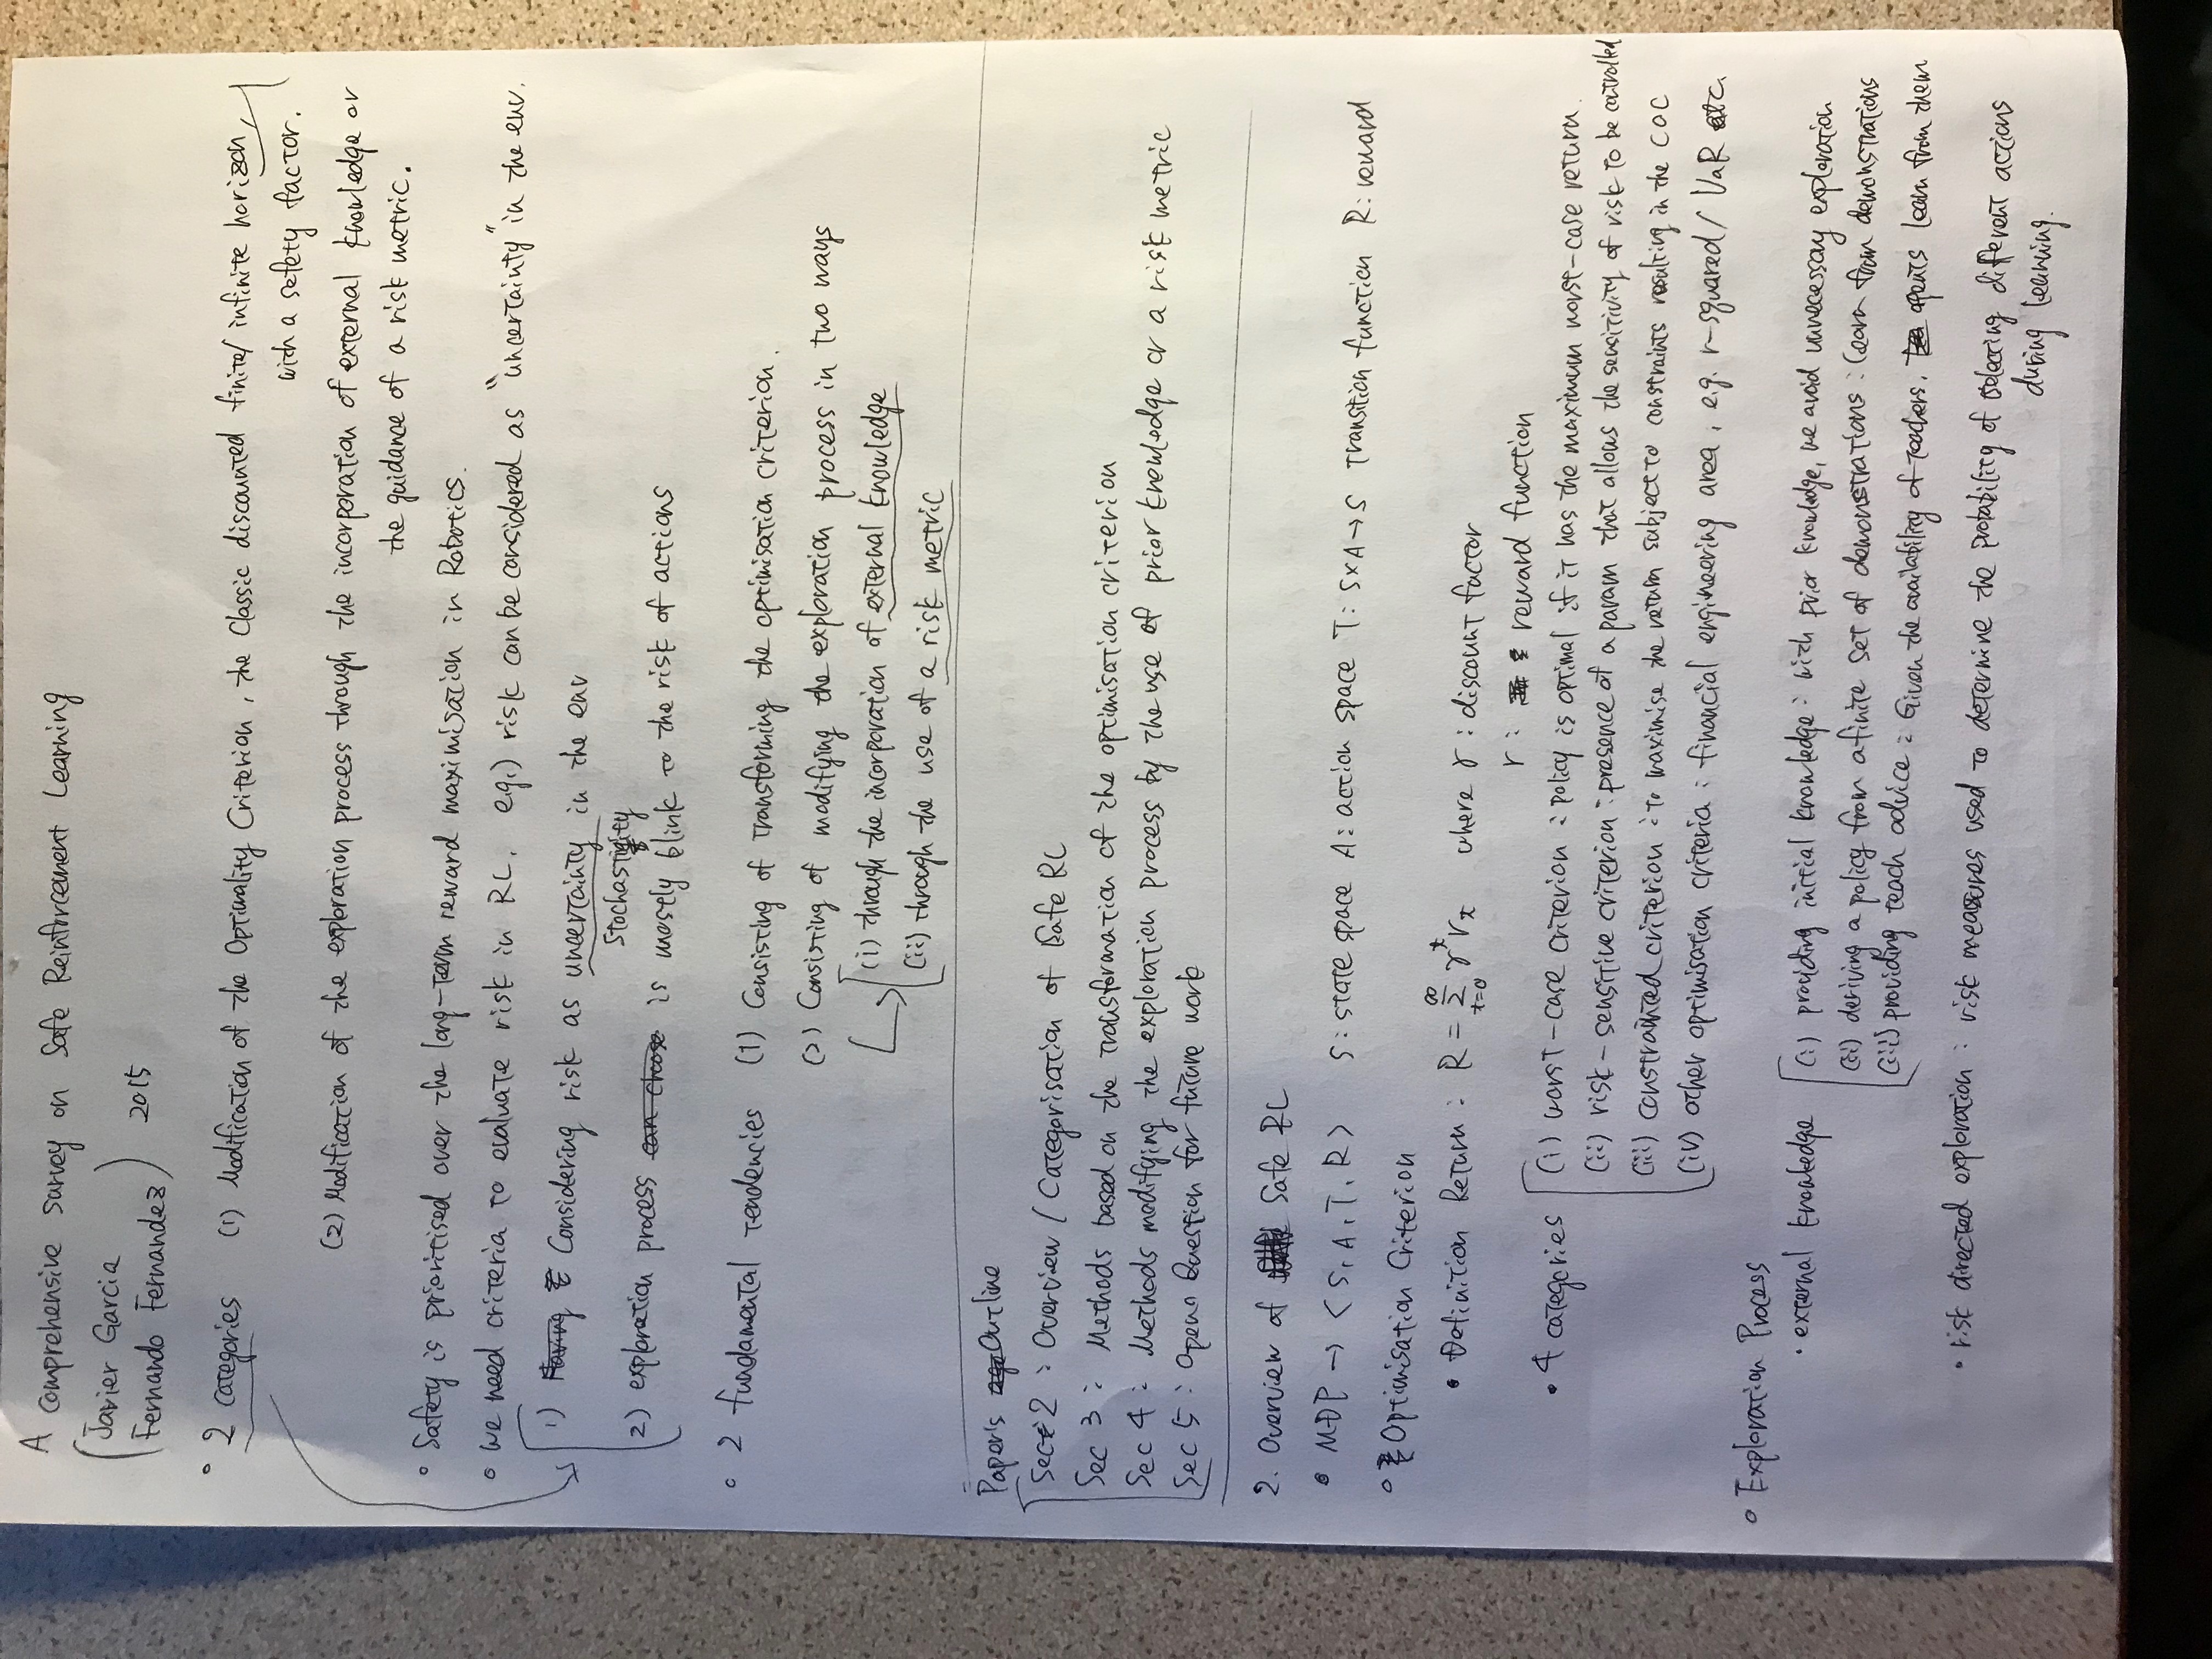 A comprehensive survey on Safe Reinforcement Learning
(Javier Garcia
Fernando Fernandez) 2015
• 2 categories (1) Modification of the Optimality Criterion, the Classic discounted finite/infinite horizon,
with a safety factor.
(2) Modification of the exploration process through the incorporation of external knowledge or
the guidance of a risk metric.
• Safety is prioritised over the long-term reward maximisation in Robotics.
• We need criteria to evaluate risk in RL. e.g.) risk can be considered as "uncertainty" in the env.
1) Having Considering risk as uncertainty in the env
Stochasticity
2) exploration process can choose is mostly blink to the risk of actions
• 2 fundamental tendencies (1) Consisting of transforming the optimisation criterion.
(2) Consisting of modifying the exploration process in two ways
(i) through the incorporation of external knowledge
(ii) through the use of a risk metric
Paper's Outline
Sec 2 : Overview / Categorisation of Safe RL
Sec 3 : Methods based on the transformation of the optimisation criterion
Sec 4 : Methods modifying the exploration process by the use of prior knowledge or a risk metric
Sec 5 : Open Question for future work
2. Overview of Safe RL
• MDP → < S, A, T, R > S : state space A : action space T : S×A→S transition function R : reward
• Optimisation Criterion
• Definition Return : R = ∑_{t=0}^{∞} γ^t r_t where γ : discount factor
r : reward function
• 4 categories (i) worst-case criterion : policy is optimal if it has the maximum worst-case return.
(ii) risk-sensitive criterion : presence of a param that allows the sensitivity of risk to be controlled
(iii) constrained criterion : to maximise the return subject to constraints resulting in the COC
(iv) other optimisation criteria : financial engineering area, e.g. r-squared / VaR etc.
• Exploration Process
• external knowledge (i) providing initial knowledge : with prior knowledge, we avoid unnecessary exploration
(ii) deriving a policy from a finite set of demonstrations : learn from demonstrations
(iii) providing teach advice : Given the availability of teachers, agents learn from them
• risk directed exploration : risk measures used to determine the probability of selecting different actions
during learning.